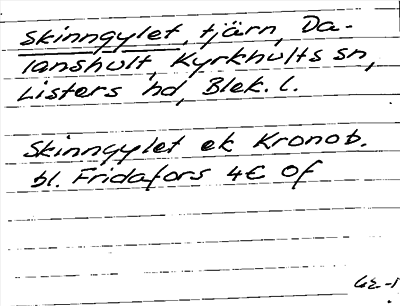 skinngylet, tjärn, Da-
lanshult, Kyrkhults sn,
Listers hd, Blek. l.
Skinngylet ek Kronob.
bl. Fridafors 4€ Of